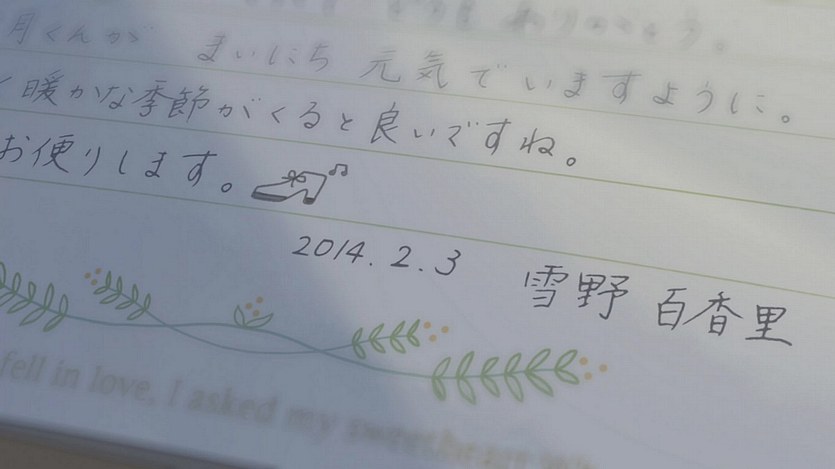 月くんが まいにち 元気でいますように。
暖かな季節がくると良いですね。
お便りします。
2014.2.3 雪野 百香里
fell in love, I asked my sweetheart